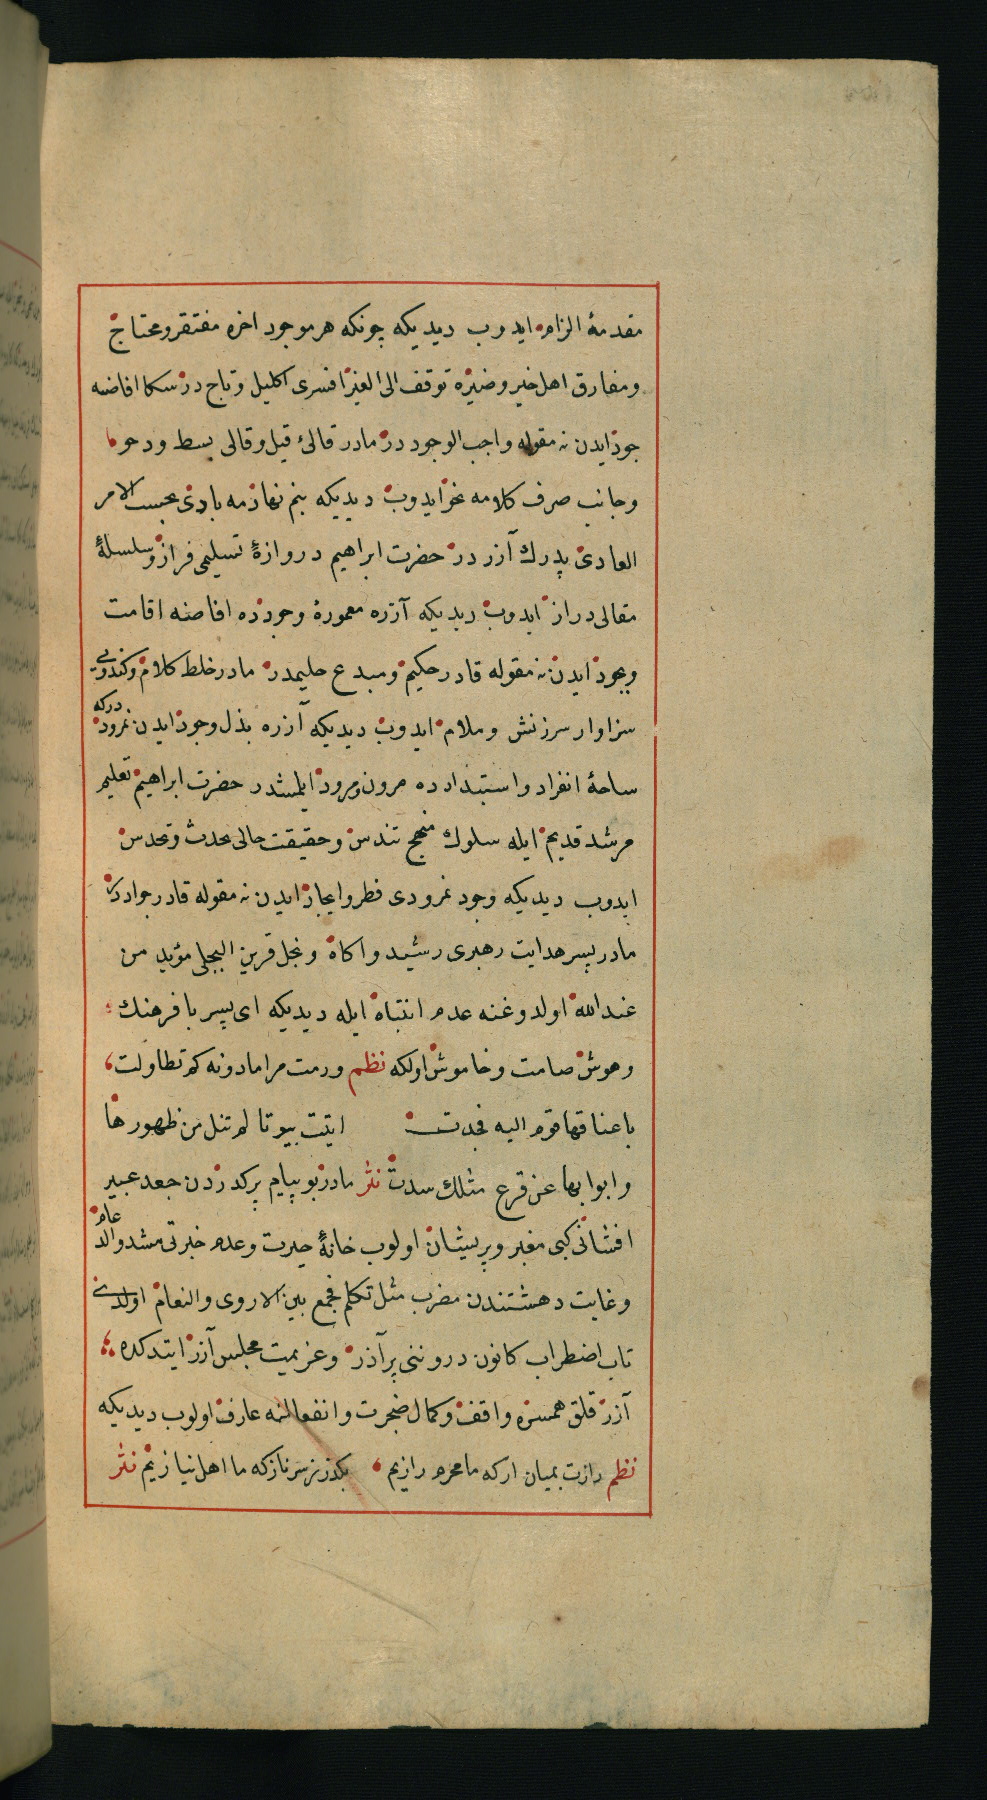 مقدمهٔ الزام ایدوب دیدیكه چونكه هر موجود اخره مفتقر و محتاج
ومفارق اهل خیر وضیره توقف الی الغیر افسری اكلیل وتاج در سكا افاضه
جود ایدن نه مقوله واجب الوجود در مادر قالئ قیل وقالی بسط ودحو
وجانب صرف كلامه نحو ایدوب دیدیكه بنم نهازمه بادئ بحسب الامر
العادئ پدرك آزر در حضرت ابراهیم دروازهٔ تسلیمی فراز وسلسلهٔ
مقالی دراز ایدوب دیدیكه آزره معمورهٔ وجودده افاضه اقامت
وجود ایدن نه مقوله قادر حكیم ومبدع حلیمدر مادر خلط كلام وكندویی
سزاوار سرزنش وملام ایدوب دیدیكه آزره بذل وجود ایدن نمرود دركه
ساحهٔ انفراد واستبدادده مرون ومرود ایلمشدر حضرت ابراهیم تعلیم
مرشد قدیم ایله سلوك منهج تندس وحقیقت حالی تحدث وتحدس
ایدوب دیدیكه وجود نمرودی فطر وایجاد ایدن نه مقوله قادر جوادر
مادر پسر هدایت رهبری رشید واكاه ونجل قرین البجلی مؤید من
عند الله اولدوغنه عدم انتباه ایله دیدیكه ای پسر با فرهنك
وهوش صامت وخاموش اولكه نظم ورمت مراما دونه كم تطاولت
باعناقها قوم الیه فجدت ایتت بیوتا لم تنل من ظهورها
وابوابها عن قرع مثلك سدت نثر مادر بو پیام پركدردن جعد عبیر
افشانی كبی مغبر وپریشان اولوب خانهٔ حیرت وعدم خبرتی مشدو الدعام
وغایت دهشتندن مضرب مثل تكلم فجمع بین الاروی والنعام اولدی
تاب اضطراب كانون دروننی پر آذر وعزیمت مجلس آزر ایتدكده
آزر قلق همسره واقف وكمال ضجرت وانفعالنه عارف اولوب دیدیكه
نظم رازت بمیان ار كه ما محرم رازیم بكذر ز سر ناز كه ما اهل نیازیم نثر